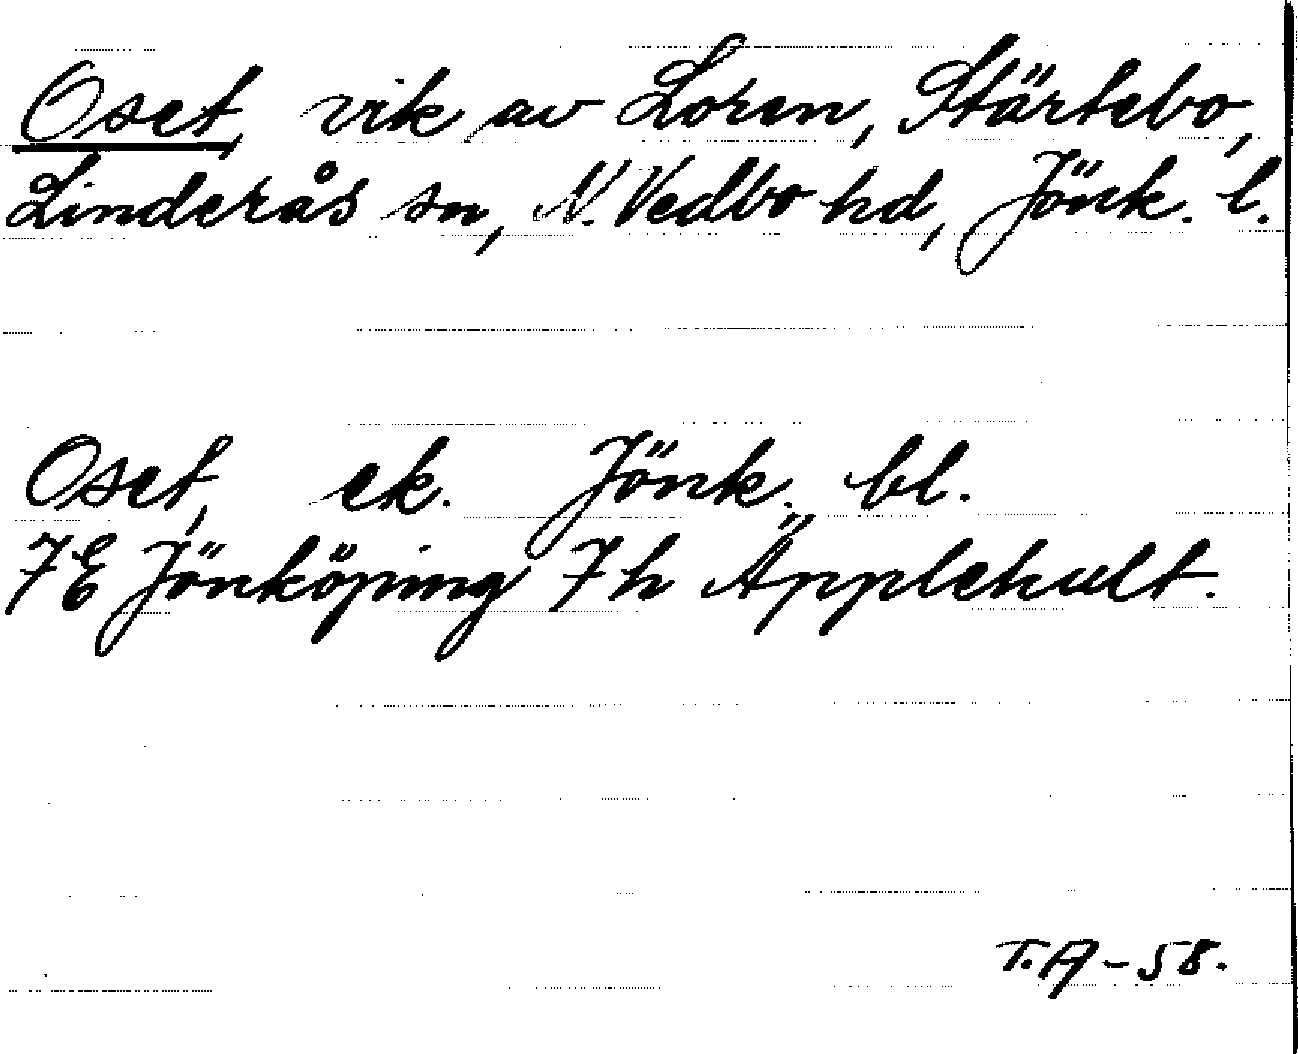 Oset, vik av Loren, Stärtebo,
Linderås sn, N. Vedbo hd, Jönk. l.
Oset, ek. Jönk. bl.
7E Jönköping 7h Äpplehult.
T.A-58.